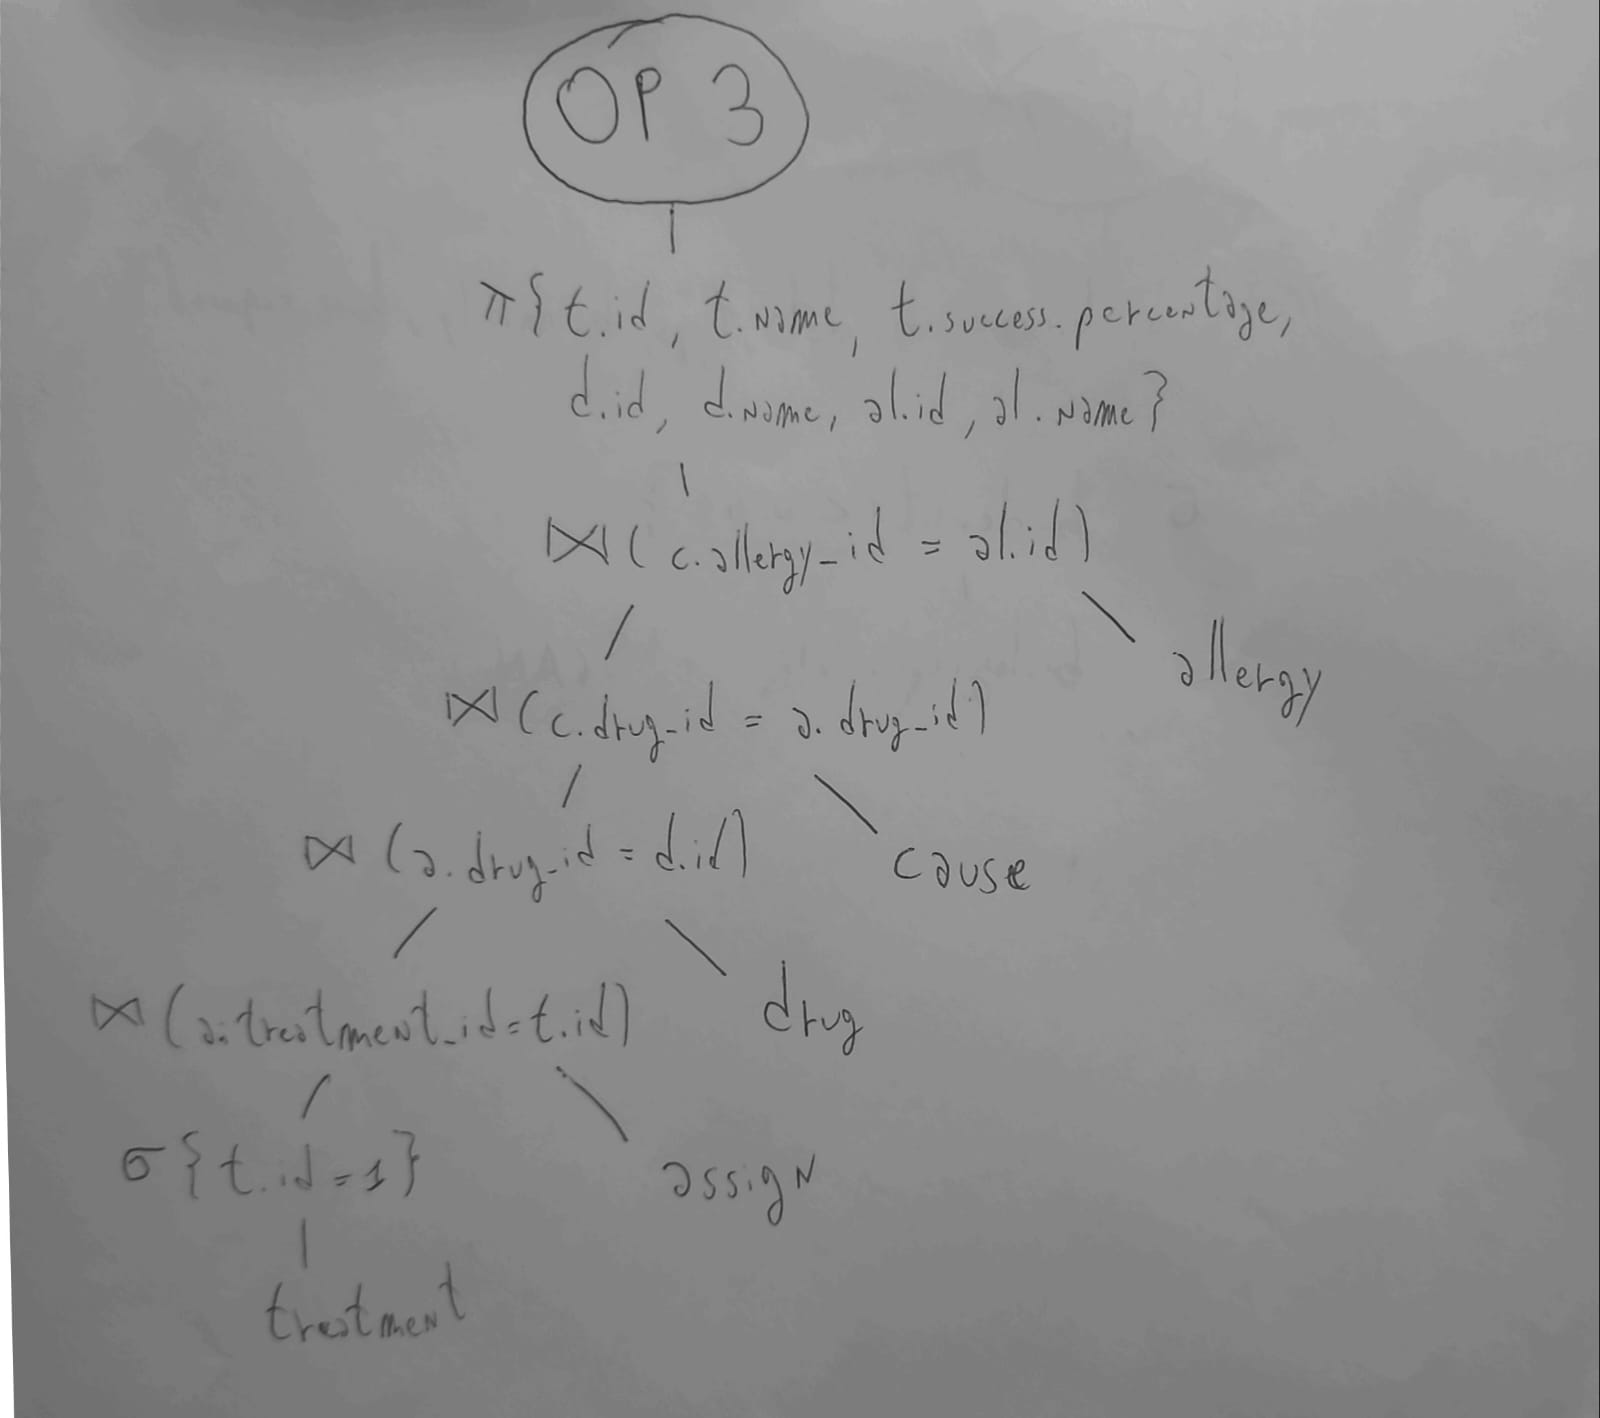 OP 3
π{t.id, t.name, t.success.percentage,
d.id, d.name, al.id, al.name}
⋈(c.allergy_id = al.id)
allergy
⋈(c.drug_id = a.drug_id)
cause
⋈(a.drug_id = d.id)
drug
⋈(a.treatment_id=t.id)
assign
σ{t.id=1}
treatment